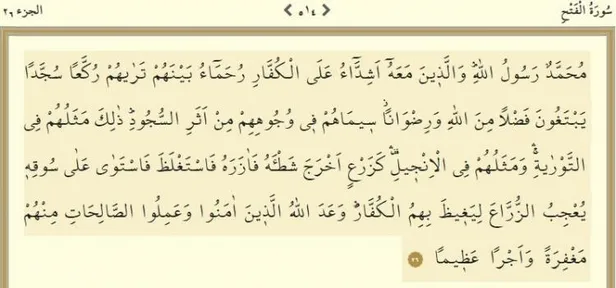 سُورَةُ الْفَتْحِ ٥١٤ الجزء ٢٦
مُحَمَّدٌ رَسُولُ اللّٰهِۜ وَالَّذ۪ينَ مَعَهُٓ اَشِدَّٓاءُ عَلَى الْكُفَّارِ رُحَمَٓاءُ بَيْنَهُمْ تَرٰيهُمْ رُكَّعًا سُجَّدًا
يَبْتَغُونَ فَضْلًا مِنَ اللّٰهِ وَرِضْوَانًاۘ س۪يمَاهُمْ ف۪ي وُجُوهِهِمْ مِنْ اَثَرِ السُّجُودِۜ ذٰلِكَ مَثَلُهُمْ فِي
التَّوْرٰيةِۚۛ وَمَثَلُهُمْ فِي الْاِنْج۪يلِ۠ۛ كَزَرْعٍ اَخْرَجَ شَطْـَٔهُ فَاٰزَرَهُ فَاسْتَغْلَظَ فَاسْتَوٰى عَلٰى سُوقِه۪
يُعْجِبُ الزُّرَّاعَ لِيَغ۪يظَ بِهِمُ الْكُفَّارَۜ وَعَدَ اللّٰهُ الَّذ۪ينَ اٰمَنُوا وَعَمِلُوا الصَّالِحَاتِ مِنْهُمْ
مَغْفِرَةً وَاَجْرًا عَظ۪يمًا ٢٩